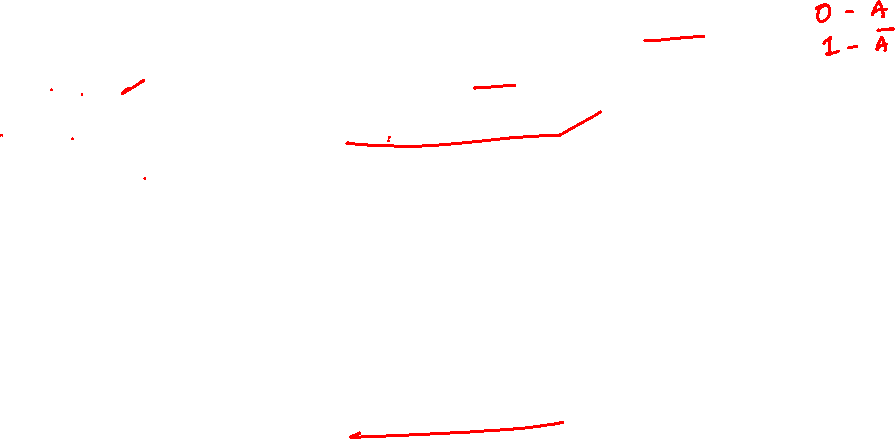 0 - A
1 - A̅